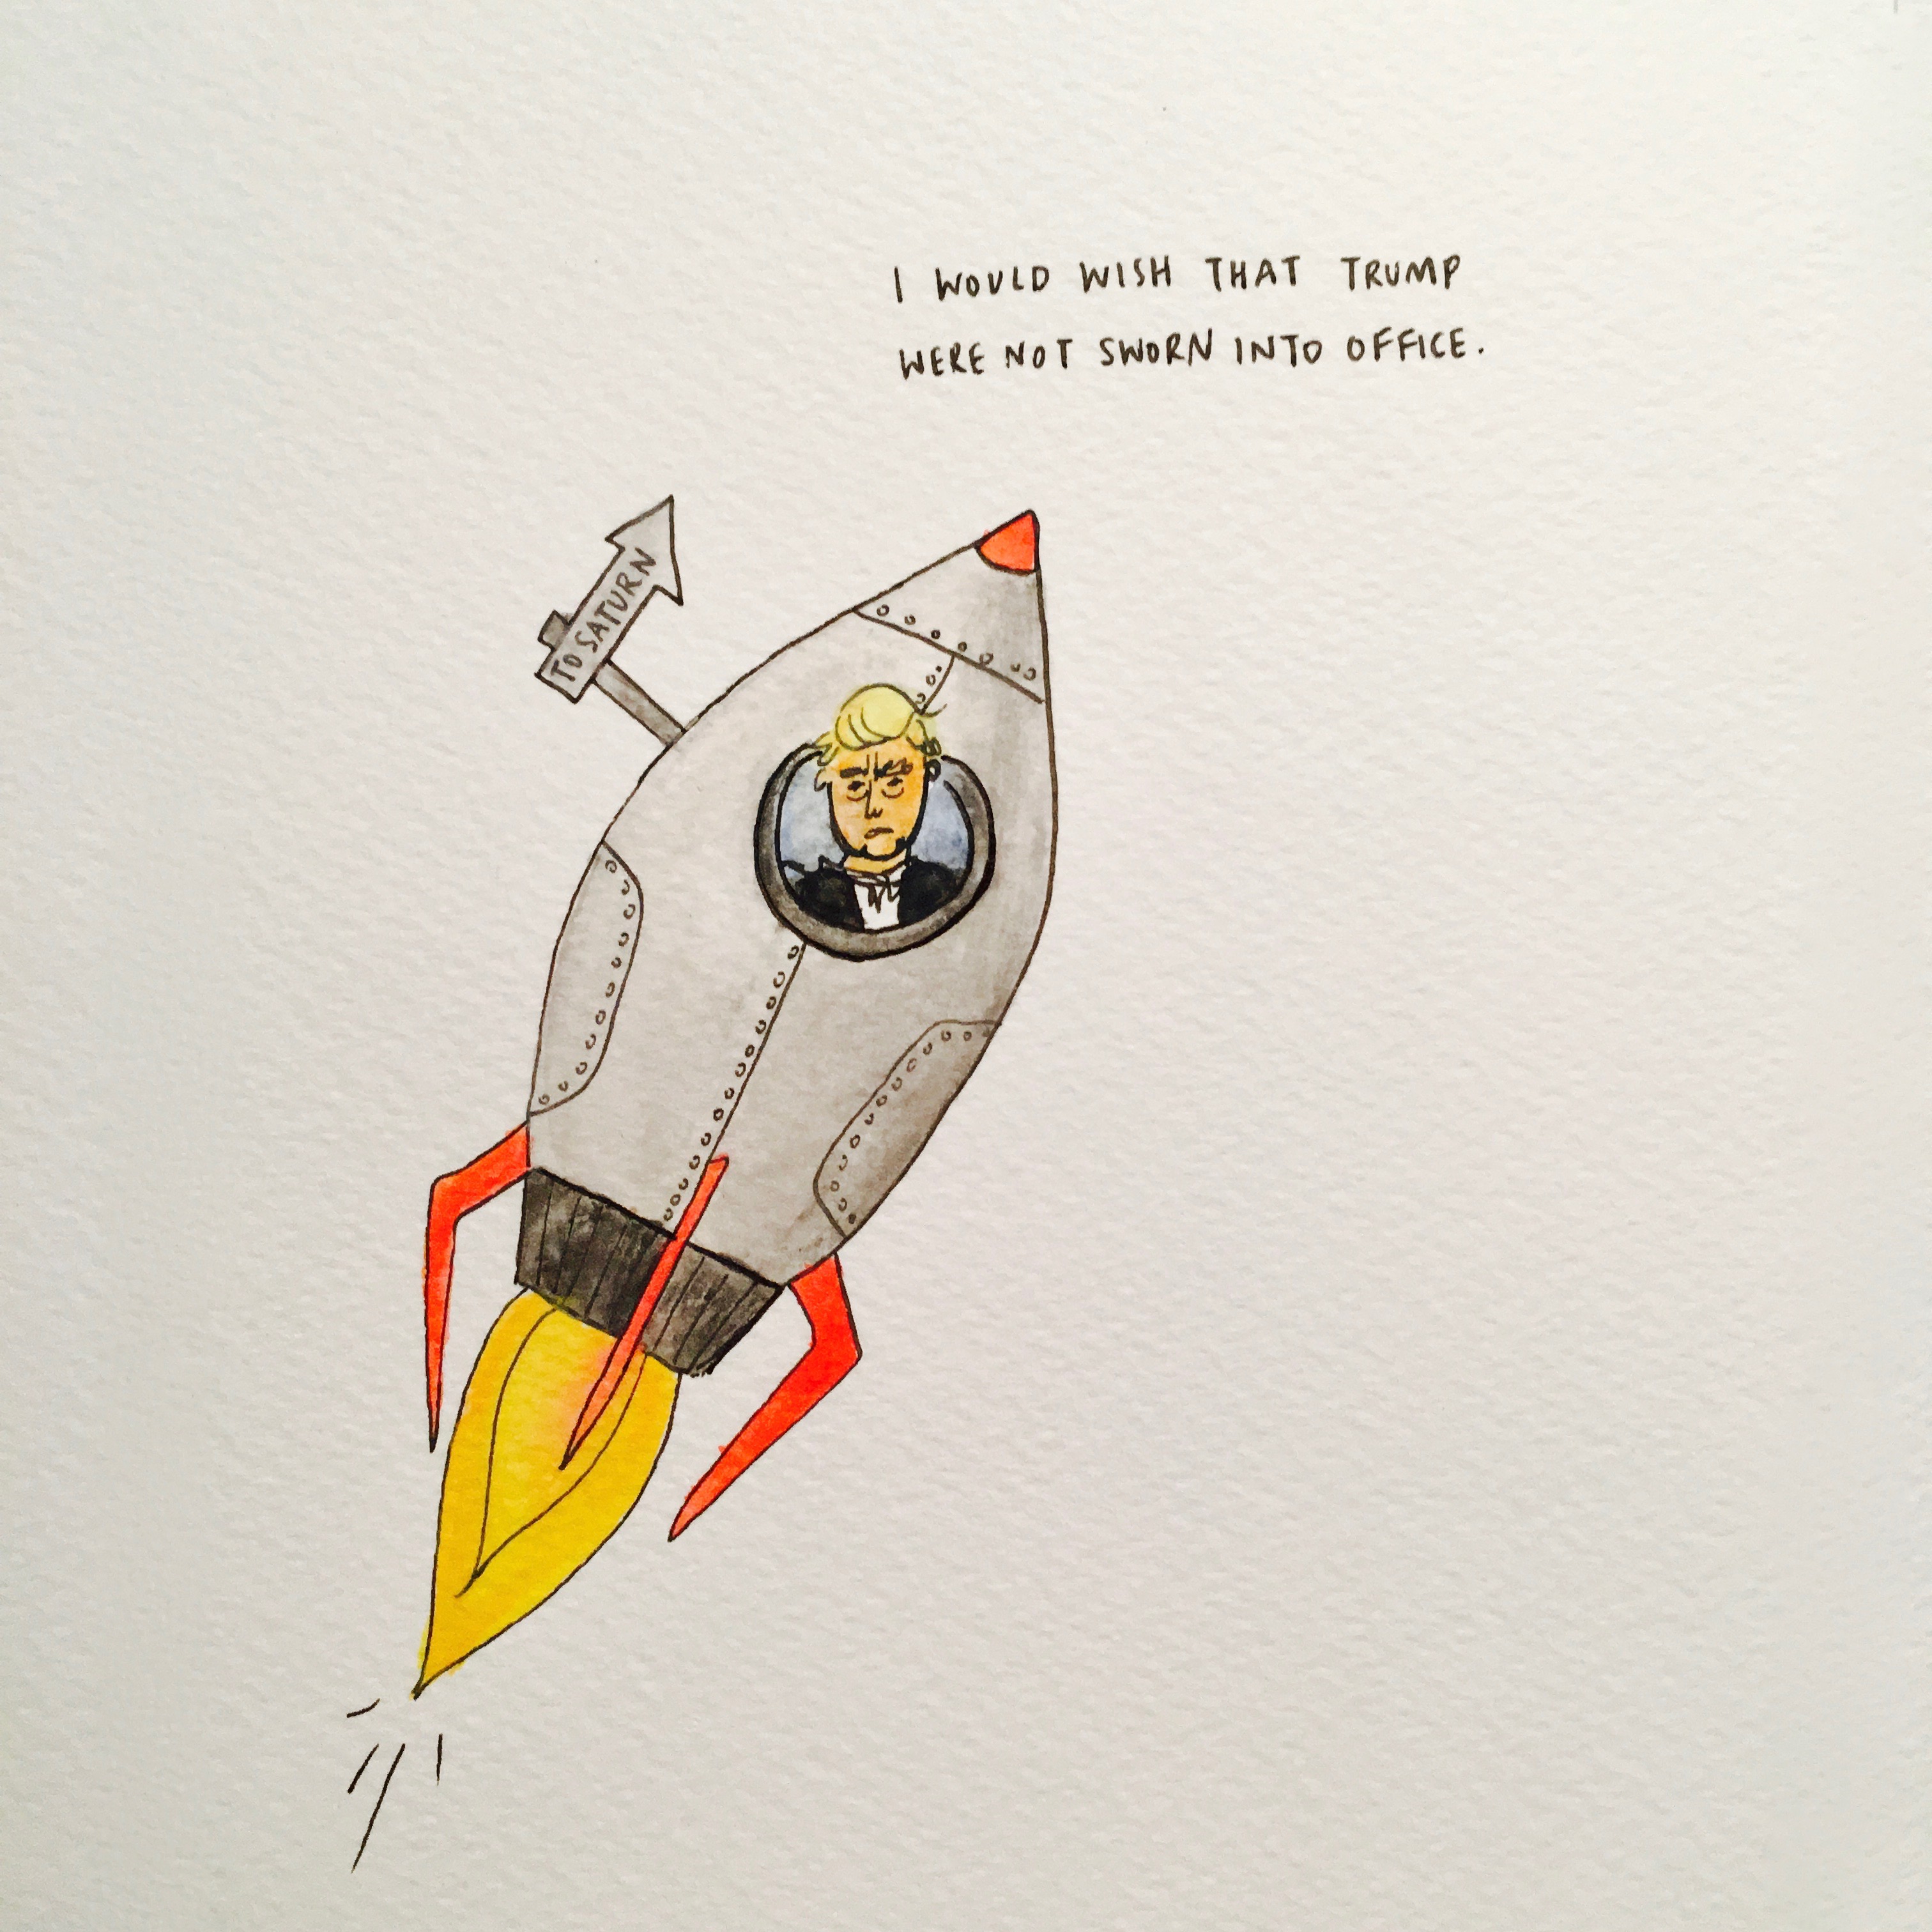 I WOULD WISH THAT TRUMP
WERE NOT SWORN INTO OFFICE.
TO SATURN